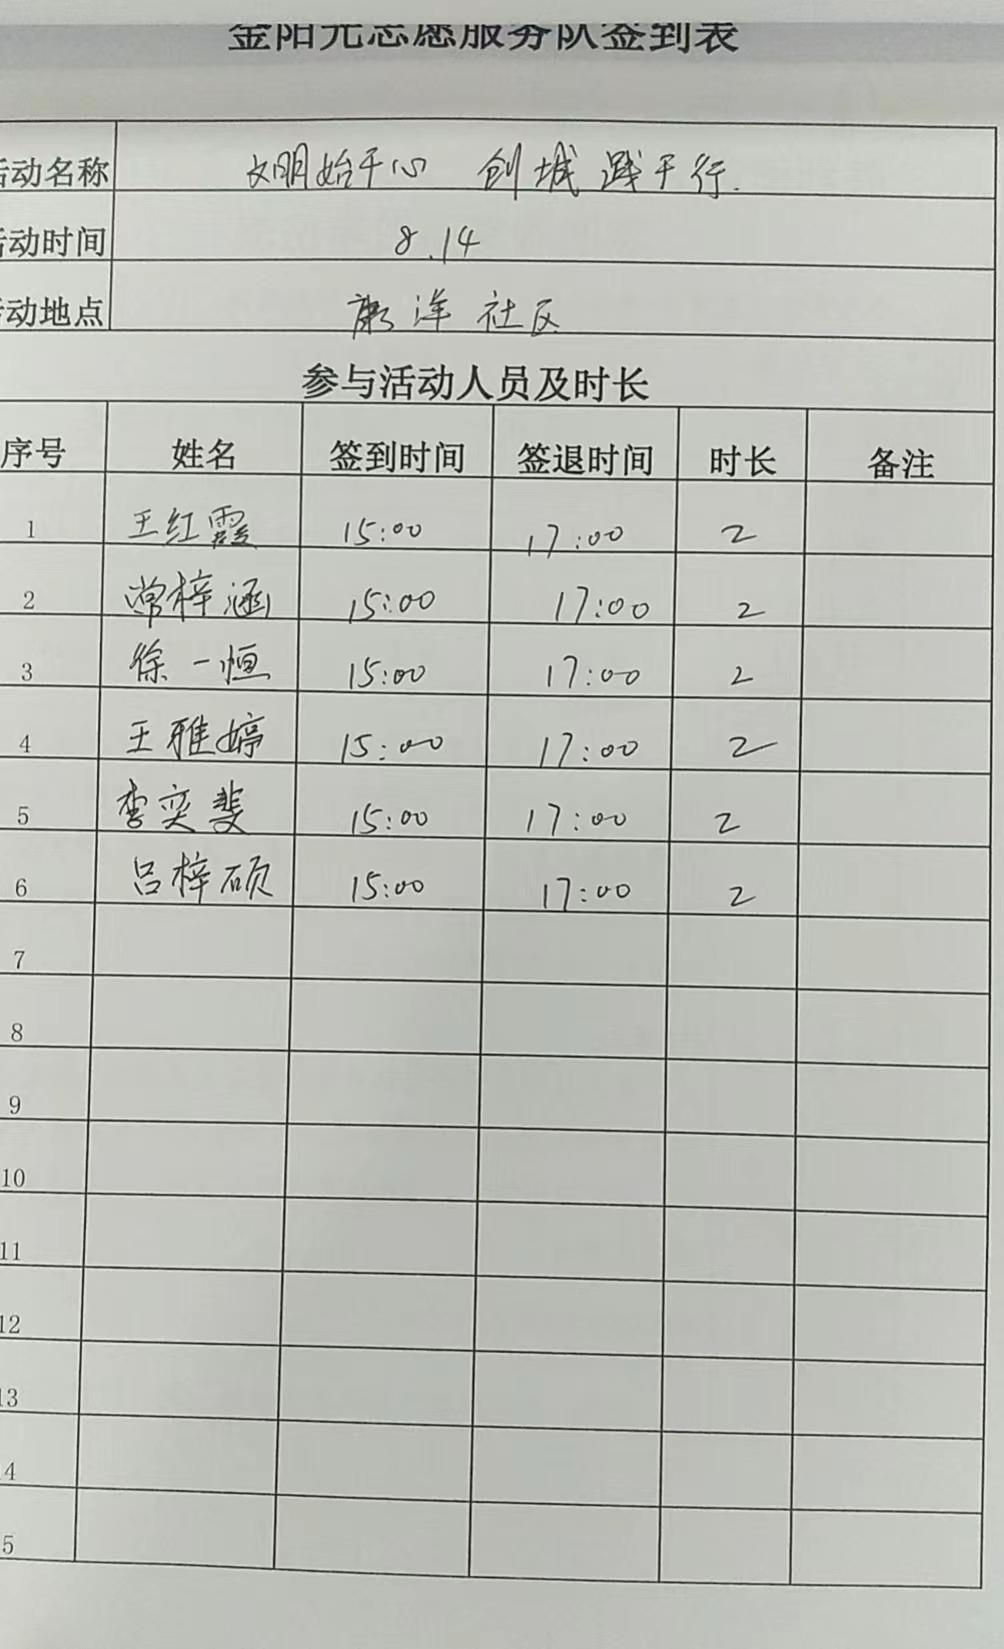 金阳光志愿服务队签到表
活动名称 文明始于心 创城践于行.
活动时间 8.14
活动地点 康洋社区
参与活动人员及时长
序号 姓名 签到时间 签退时间 时长 备注
1 王红霞 15:00 17:00 2
2 常梓涵 15:00 17:00 2
3 徐一恒 15:00 17:00 2
4 王雅婷 15:00 17:00 2
5 李奕斐 15:00 17:00 2
6 吕梓硕 15:00 17:00 2
7
8
9
10
11
12
13
4
5